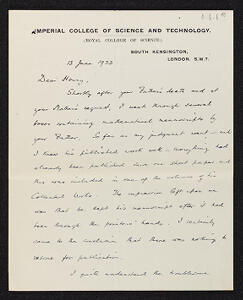 IMPERIAL COLLEGE OF SCIENCE AND TECHNOLOGY,
(ROYAL COLLEGE OF SCIENCE)
SOUTH KENSINGTON,
LONDON, S.W.7.
13 June 1933
Dear Henry,
Shortly after your Father's death and at
your Mother's request, I went through several
boxes containing mathematical manuscripts by
your Father. So far as my judgment went — and
I knew his published work well — everything had
already been published save one short paper and
this was included in one of the volumes of his
Collected Works. The impression left upon me
was that he kept his manuscripts after it had
been through the printers' hands. I certainly
came to the conclusion that there was nothing to
for publication.
I quite understand the troublesome